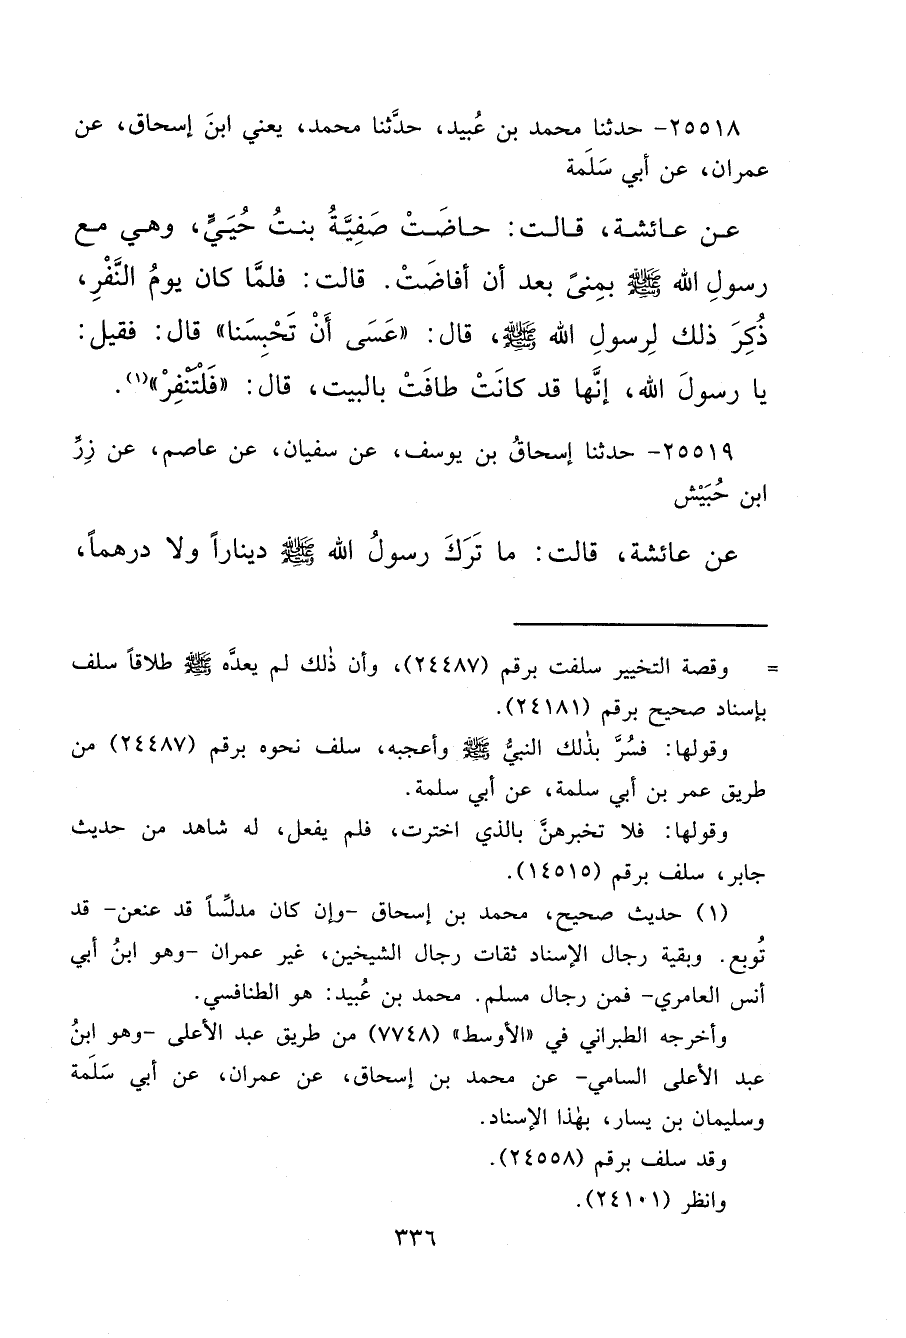 ٢٥٥١٨- حدثنا محمد بن عُبيد، حدَّثنا محمد، يعني ابنَ إسحاق، عن
عمران، عن أبي سَلَمة
عن عائشة، قالت: حاضَتْ صَفِيَّةُ بنتُ حُيَيٍّ، وهي مع
رسولِ الله ﷺ بمِنىً بعد أن أفاضَتْ. قالت: فلمَّا كان يومُ النَّفْرِ،
ذُكِرَ ذلك لِرسولِ الله ﷺ، قال: «عَسَى أَنْ تَحْبِسَنا» قال: فقيل:
يا رسولَ الله، إنَّها قد كانَتْ طافَتْ بالبيت، قال: «فَلْتَنْفِرْ»(١).
٢٥٥١٩- حدثنا إسحاقُ بن يوسف، عن سفيان، عن عاصم، عن زِرِّ
ابن حُبَيْش
عن عائشة، قالت: ما تَرَكَ رسولُ الله ﷺ ديناراً ولا درهماً،
= وقصة التخيير سلفت برقم (٢٤٤٨٧)، وأن ذٰلك لم يعدَّه ﷺ طلاقاً سلف
بإسناد صحيح برقم (٢٤١٨١).
وقولها: فسُرَّ بذٰلك النبيُّ ﷺ وأعجبه، سلف نحوه برقم (٢٤٤٨٧) من
طريق عمر بن أبي سلمة، عن أبي سلمة.
وقولها: فلا تخبرهنَّ بالذي اخترت، فلم يفعل، له شاهد من حديث
جابر، سلف برقم (١٤٥١٥).
(١) حديث صحيح، محمد بن إسحاق -وإن كان مدلِّساً قد عنعن- قد
تُوبع. وبقية رجال الإسناد ثقات رجال الشيخين، غير عمران -وهو ابنُ أبي
أنس العامري- فمن رجال مسلم. محمد بن عُبيد: هو الطنافسي.
وأخرجه الطبراني في «الأوسط» (٧٧٤٨) من طريق عبد الأعلى -وهو ابنُ
عبد الأعلى السامي- عن محمد بن إسحاق، عن عمران، عن أبي سَلَمة
وسليمان بن يسار، بهٰذا الإسناد.
وقد سلف برقم (٢٤٥٥٨).
وانظر (٢٤١٠١).
٣٣٦